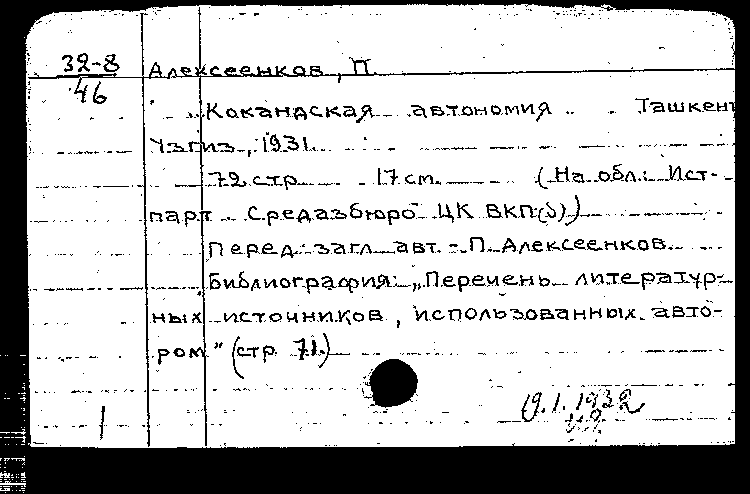 32-8
46
Алексеенков, П.
Кокандская автономия. Ташкент
Узгиз, 1931.
72 стр. 17 см. (На обл.: Ист-
парт Средазбюро ЦК ВКП(б))
Перед загл. авт. - П. Алексеенков.
Библиография: „Перечень литератур-
ных источников, использованных авто-
ром" (стр. 71.)
1
9.1.1932